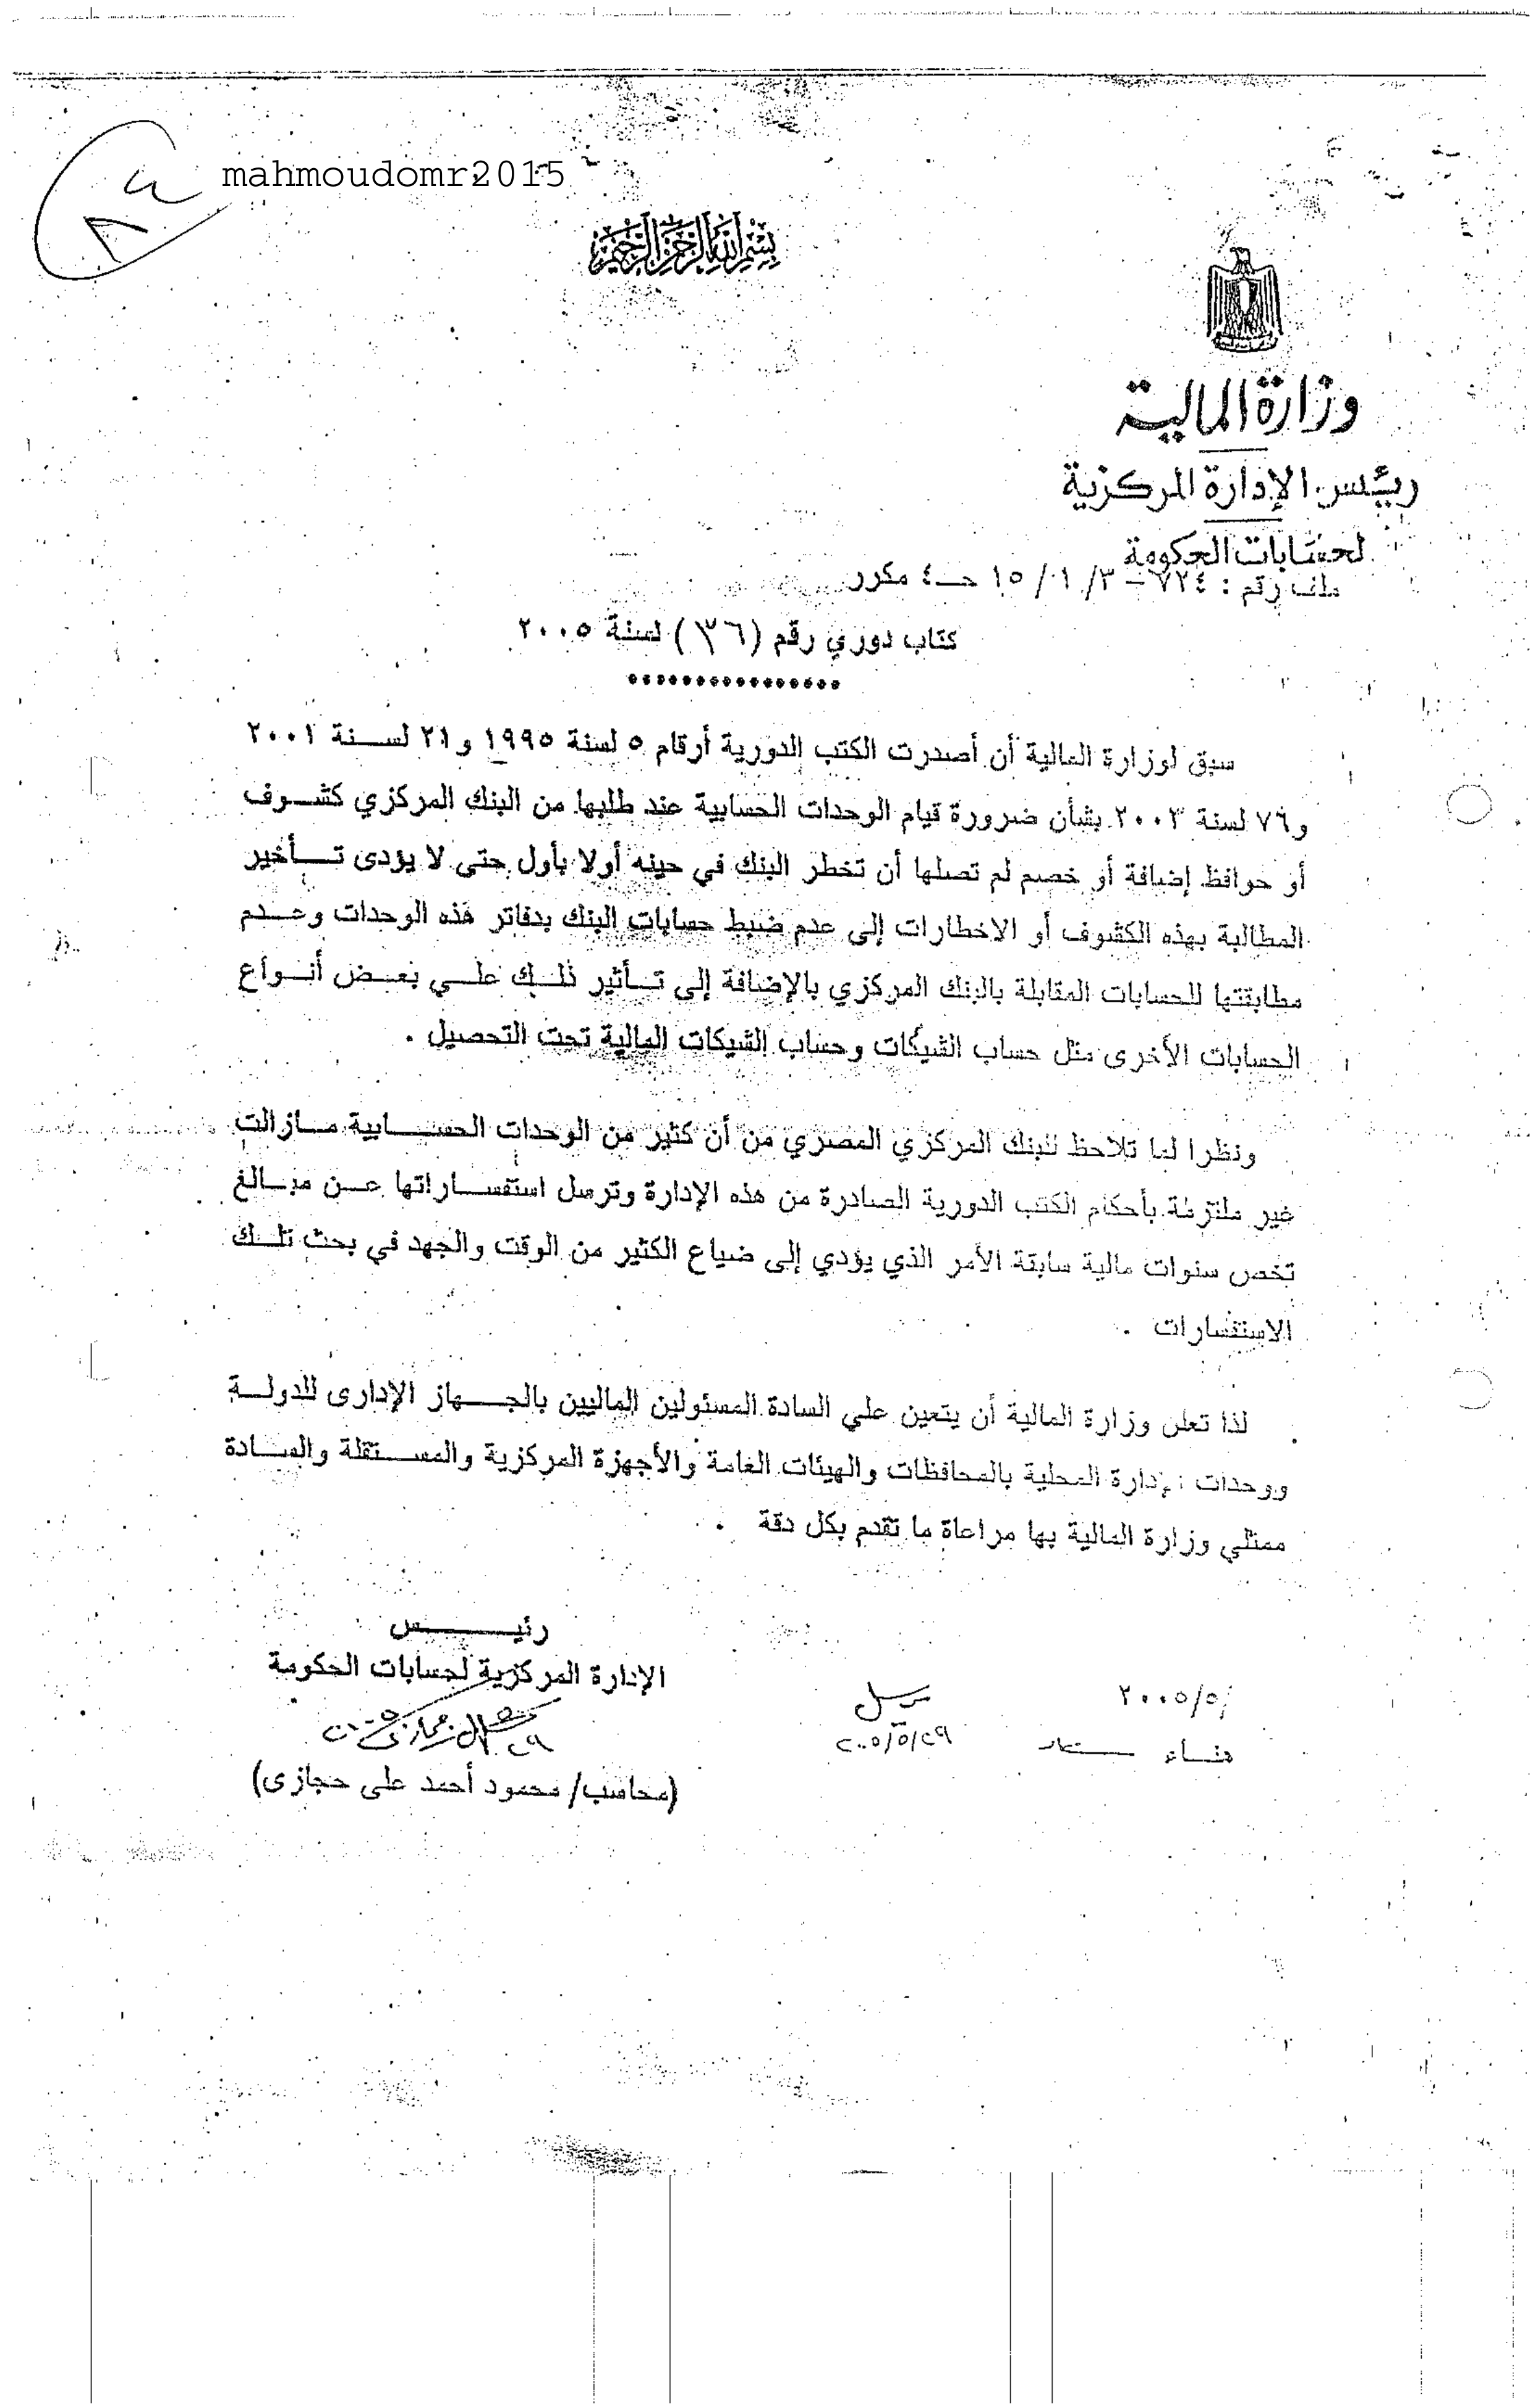 mahmoudomr2015
بسم الله الرحمن الرحيم
وزارة المالية
رئيس الإدارة المركزية
لحسابات الحكومة
ملف رقم : ٧٢٤ – ٣/ ١/ ١٥ حـ٤ مكرر
كتاب دوري رقم (٣٦) لسنة ٢٠٠٥
****************
سبق لوزارة المالية أن أصدرت الكتب الدورية أرقام ٥ لسنة ١٩٩٥ و٢١ لسنة ٢٠٠١
و٧٦ لسنة ٢٠٠٢ بشأن ضرورة قيام الوحدات الحسابية عند طلبها من البنك المركزي كشوف
أو حوافظ إضافة أو خصم لم تصلها أن تخطر البنك في حينه أولا بأول حتى لا يؤدى تأخير
المطالبة بهذه الكشوف أو الاخطارات إلى عدم ضبط حسابات البنك بدفاتر هذه الوحدات وعدم
مطابقتها للحسابات المقابلة بالبنك المركزي بالإضافة إلى تأثير ذلك علي بعض أنواع
الحسابات الأخرى مثل حساب الشيكات وحساب الشيكات المالية تحت التحصيل .
ونظرا لما تلاحظ للبنك المركزي المصري من أن كثير من الوحدات الحسابية مازالت
غير ملتزمة بأحكام الكتب الدورية الصادرة من هذه الإدارة وترسل استفساراتها عن مبالغ
تخص سنوات مالية سابقة الأمر الذي يؤدي إلى ضياع الكثير من الوقت والجهد في بحث تلك
الاستفسارات .
لذا تعلن وزارة المالية أن يتعين علي السادة المسئولين الماليين بالجهاز الإدارى للدولة
ووحدات الإدارة المحلية بالمحافظات والهيئات العامة والأجهزة المركزية والمستقلة والسادة
ممثلي وزارة المالية بها مراعاة ما تقدم بكل دقة .
رئيس
الإدارة المركزية لحسابات الحكومة
/٢٠٠٥/٥
٢٠٠٥/٥/٢٩
هناء
(محاسب/ محمود أحمد على حجازى)